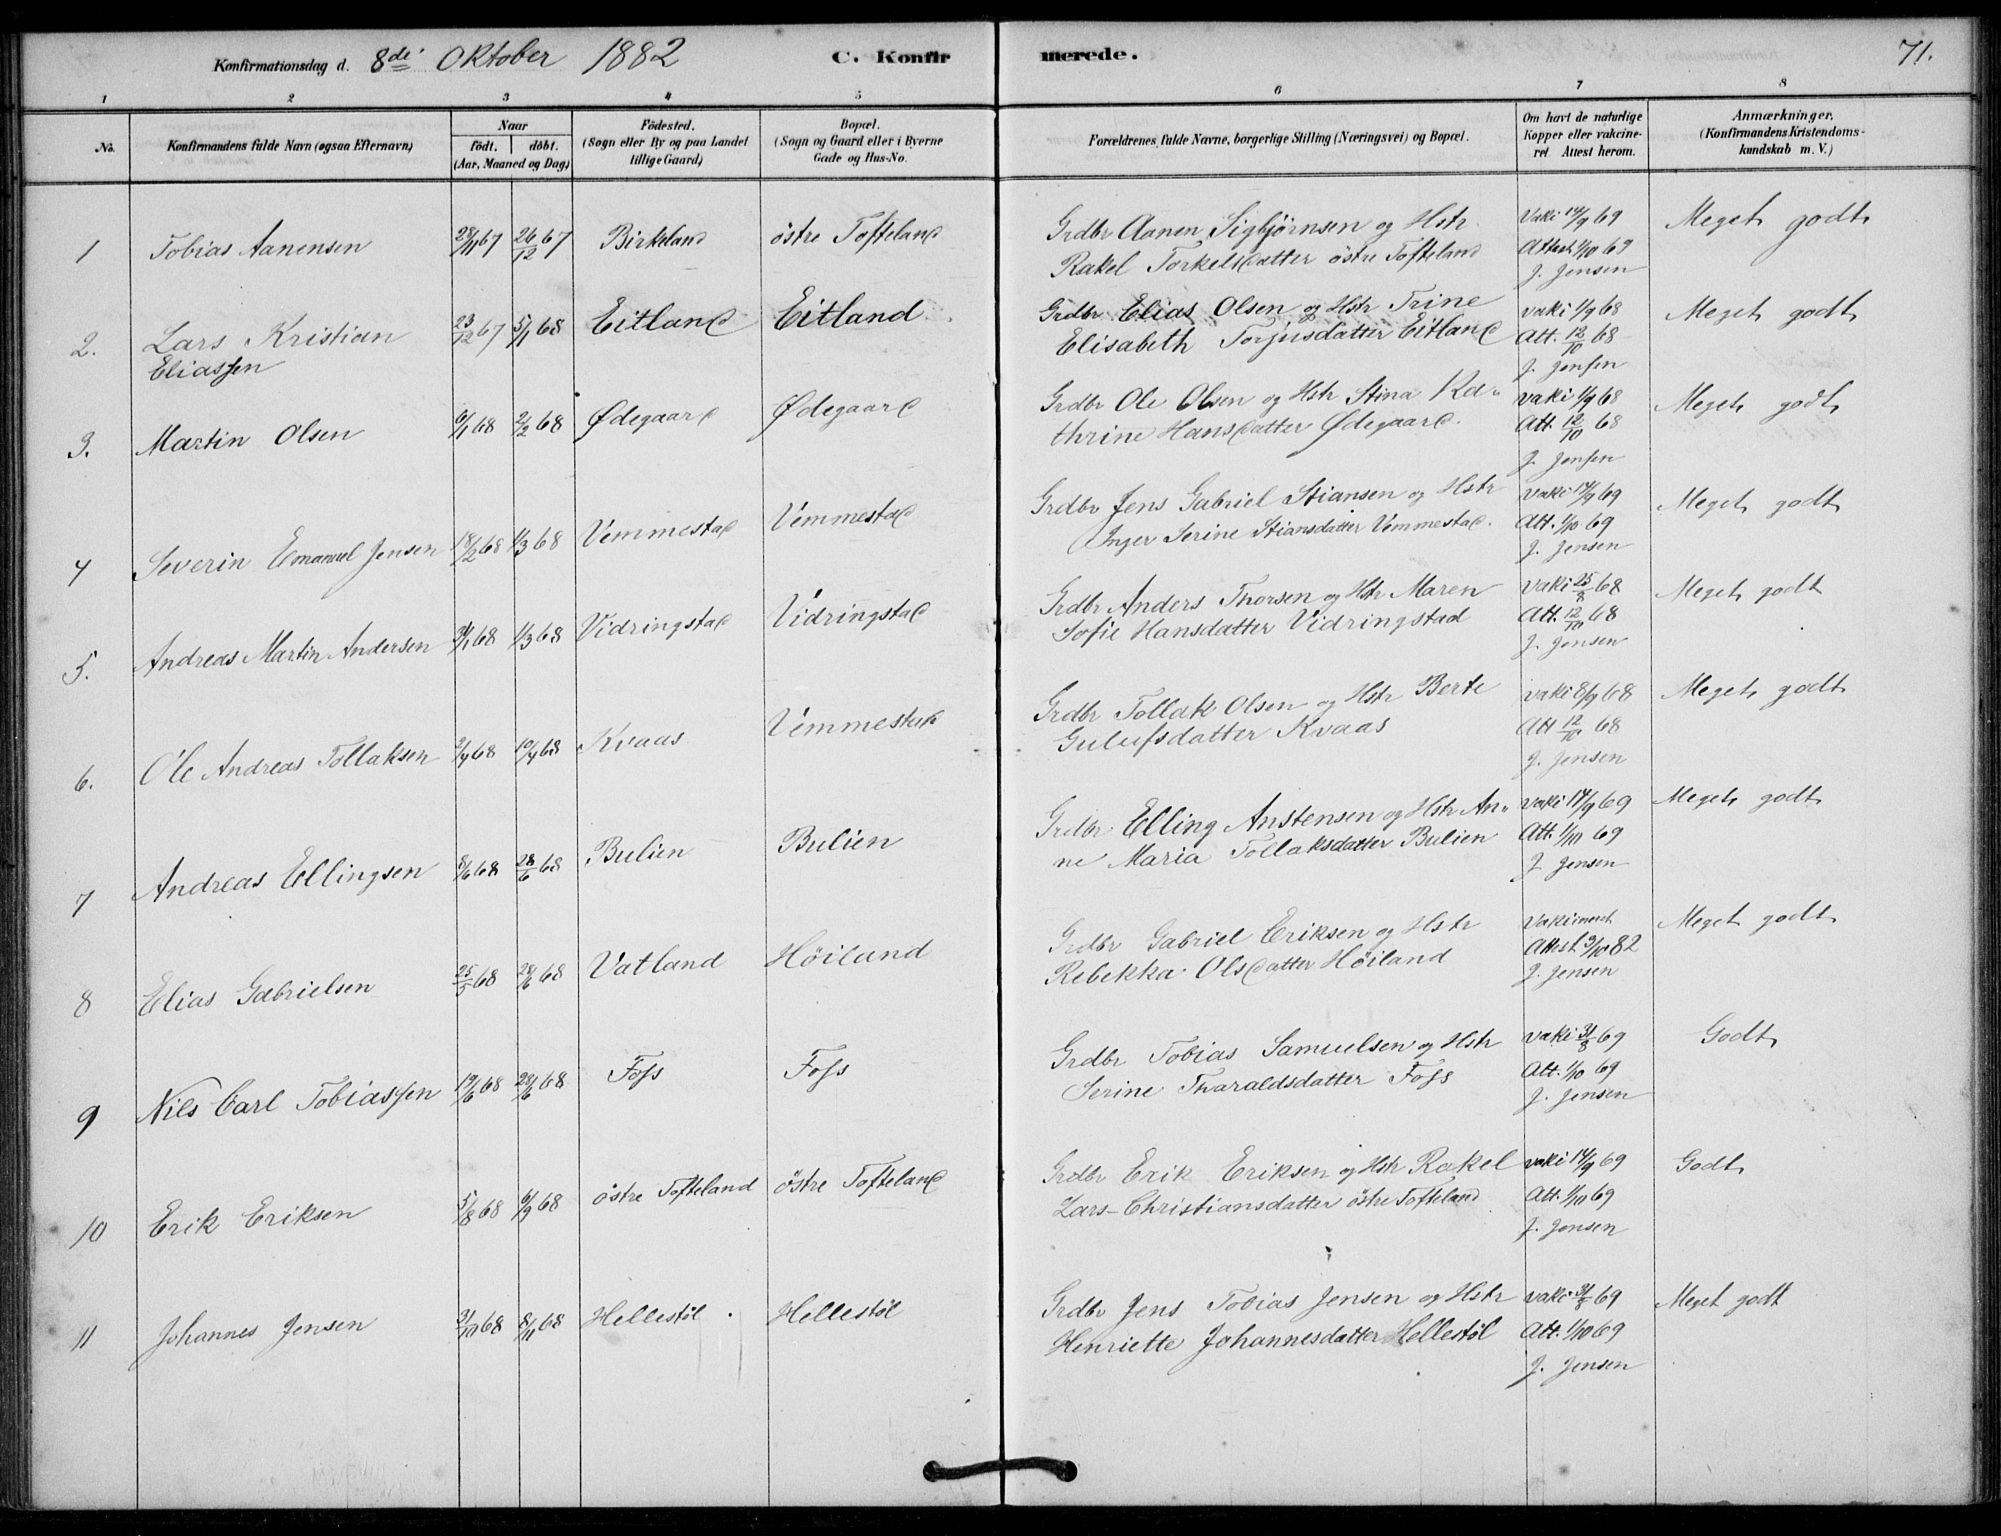 Konfirmationsdag d. 8de Oktober 1882 C. Konfirmerede. 71.
1 2 3 4 5 6 7 8
No. Konfirmandens fulde Navn (ogsaa Efternavn) Naar født. døbt. (Aar, Maaned og Dag) Fødested. (Sogn eller By og paa Landet tillige Gaard) Bopæl. (Sogn og Gaard eller i Byerne Gade og Hus-No. Forældrenes fulde Navne, borgerlige Stilling (Næringsvei) og Bopæl. Om havt de naturlige Kopper eller vakcineret Attest herom. Anmærkninger. (Konfirmandens Kristendomskundskab m. V.)
1 Tobias Aanensen 28/11 67 26/12 67 Birkeland østre Tofteland Grdbr Aanen Sigbjørnsen og Hstr Vaki 14/9 69 Meget godt
Rakel Torkelsdatter østre Tofteland Attest 1/10 69
J. Jensen
2. Lars Kristian 23/12 67 5/1 68 Eitland Eitland Grdbr Elias Olsen og Hstr Trine vaki 1/9 68 Meget godt
Eliassen Elisabeth Torjusdatter Eitland Att. 12/10 68
J. Jensen
3. Martin Olsen 6/1 68 2/2 68 Ødegaard Ødegaard Grdbr Ole Olsen og Hstr Stina Ka- vaki 1/9 68 Meget godt
thrine Hansdatter Ødegaard. Att. 12/10 68
J. Jensen
4 Severin Emanuel Jensen 18/2 68 1/3 68 Vemmestad Vemmestad Grdbr Jens Gabriel Stiansen og Hstr Vaki 14/9 69 Meget godt
Inger Serine Stiansdatter Vemmestad. Att. 1/10 69
J. Jensen
5. Andreas Martin Andersen 31/1 68 1/3 68 Vidringstad Vidringstad Grdbr Anders Thorsen og Hstr Maren Vaki 25/8 68 Meget godt
Sofie Hansdatter Vidringstad Att. 12/10 68
J. Jensen
6. Ole Andreas Tollaksen 2/4 68 10/4 68 Kvaas Vemmestad Grdbr Tollak Olsen og Hstr Berte vaki 8/9 68 Meget godt
Gulufsdatter Kvaas Att 12/10 68
J. Jensen
7 Andreas Ellingsen 8/6 68 28/6 68 Bulien Bulien Grdbr Elling Anstensen og Hstr An- vaki 14/9 69 Meget godt
ne Maria Tollaksdatter Bulien Att. 1/10 69
J. Jensen
8 Elias Gabrielsen 25/5 68 28/6 68 Vatland Høiland Grdbr Gabriel Eriksen og Hstr Vakineret Meget godt
Rebekka Olsdatter Høiland Attest 3/10 82
J. Jensen
9 Nils Carl Tobiassen 19/6 68 28/6 68 Foss Foss Grdbr Tobias Samuelsen og Hstr vaki 31/8 69 Godt
Serine Tharaldsdatter Foss Att. 1/10 69
J. Jensen
10 Erik Eriksen 5/8 68 6/9 68 østre Tofteland østre Tofteland Grdbr Erik Eriksen og Hstr Rakel vaki 14/9 69 Godt
Lars-Christiansdatter østre Tofteland Att. 1/10 69
J. Jensen
11 Johannes Jensen 3/10 68 8/11 68 Hellestøl Hellestøl Grdbr Jens Tobias Jensen og Hstr vaki 31/8 69 Meget godt
Henriette Johannesdatter Hellestøl Att. 1/10 69
J. Jensen